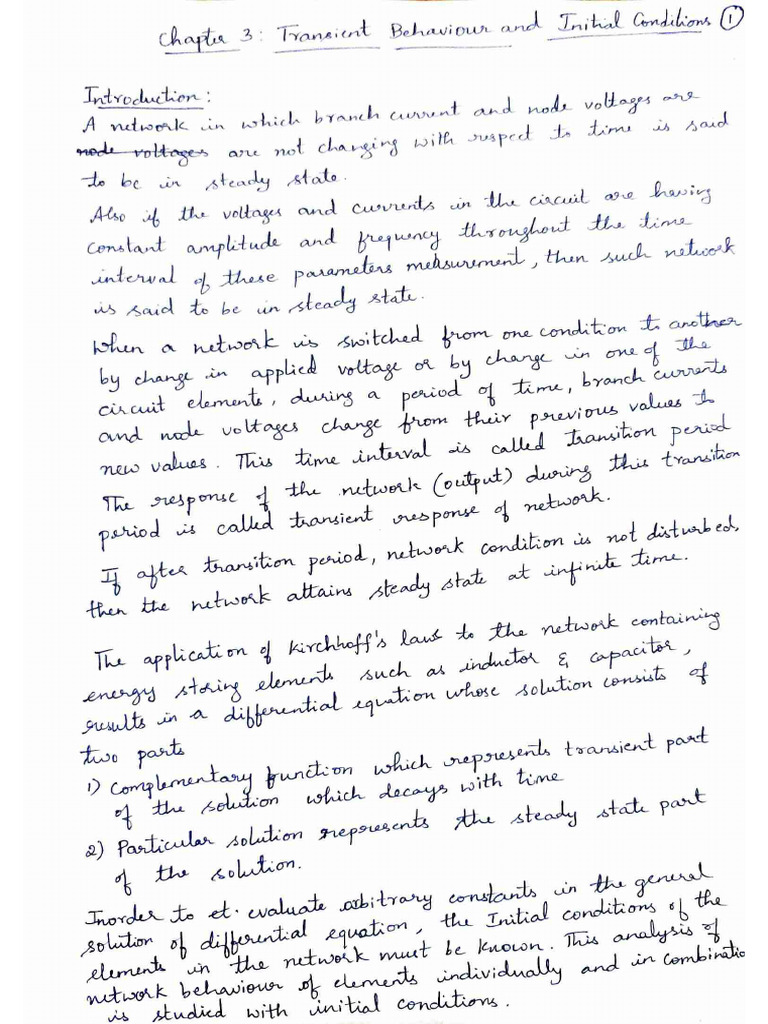 Chapter 3: Transient Behaviour and Initial Conditions 1
Introduction:
A network in which branch current and node voltages are
node voltages are not changing with respect to time is said
to be in steady state.
Also if the voltages and currents in the circuit are having
constant amplitude and frequency throughout the time
interval of these parameters measurement, then such network
is said to be in steady state.
When a network is switched from one condition to another
by change in applied voltage or by change in one of the
circuit elements, during a period of time, branch currents
and node voltages change from their previous values to
new values. This time interval is called transition period
The response of the network (output) during this transition
period is called transient response of network.
If after transition period, network condition is not disturbed,
then the network attains steady state at infinite time.
The application of Kirchhoff's laws to the network containing
energy storing elements such as inductor & capacitor,
results in a differential equation whose solution consists of
two parts
1) Complementary function which represents transient part
of the solution which decays with time
2) Particular solution represents the steady state part
of the solution.
Inorder to et. evaluate arbitrary constants in the general
solution of differential equation, the Initial conditions of the
elements in the network must be known. This analysis of
network behaviour of elements individually and in combinatio
is studied with initial conditions.